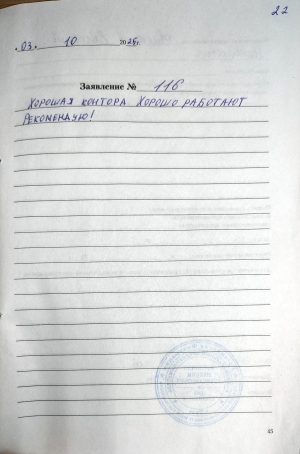 22
„03“ 10 2025г.
Заявление № 116
ХОРОШАЯ КОНТОРА ХОРОШО РАБОТАЮТ
РЕКОМЕНДУЮ!
25